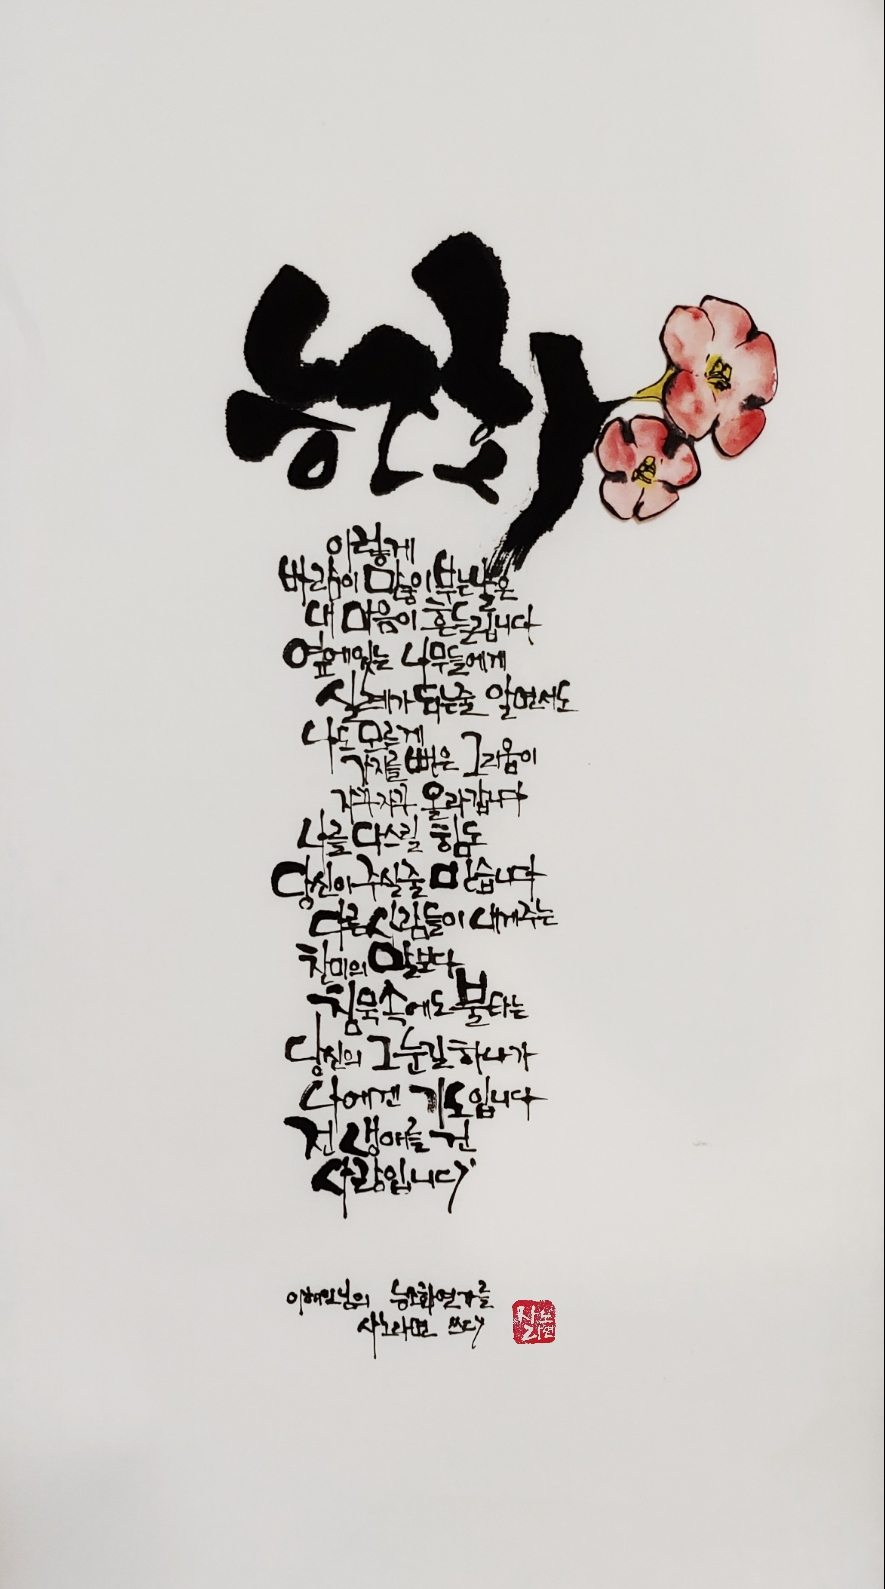 능소화
이렇게
바람이 많이 부는 날은
내 마음이 흔들립니다
옆에 있는 나무들에게
실례가 되는줄 알면서도
나도 모르게
가지를 뻗은 그리움이
자꾸자꾸 올라갑니다
나를 다스릴 힘도
당신이 주실줄 믿습니다
다른 사람들이 내게 주는
찬미의 말보다
침묵속에도 불타는
당신의 그 눈길 하나가
나에겐 기도입니다
전 생애를 건
사랑입니다
이해인님의 능소화연가를
사노라면 쓰다
사노라면